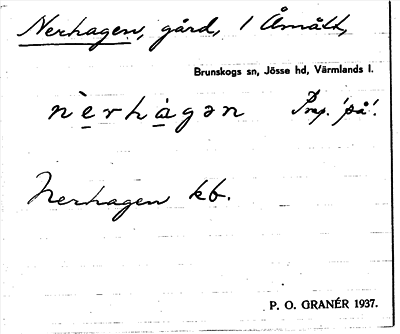 Nerhagen, gård, 1 Åmått,
Brunskogs sn, Jösse hd, Värmlands l.
nèrhàgən Prep. 'på'.
Nerhagen kb.
P. O. GRANÉR 1937.